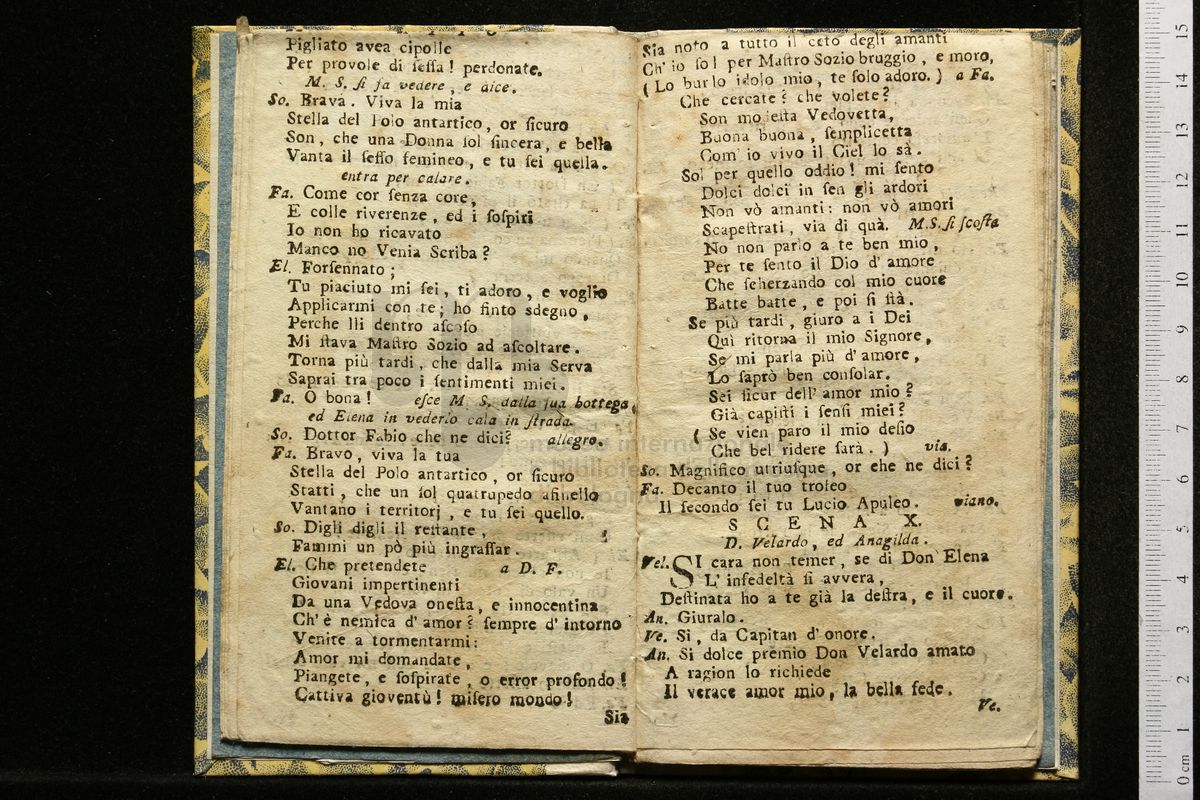 Pigliato avea cipolle
Per provole di ſeſſa! perdonate.
M. S. ſi fa vedere, e dice.
So. Brava. Viva la mia
Stella del Polo antartico, or ſicuro
Son, che una Donna ſol ſincera, e bella
Vanta il ſeſſo femineo, e tu ſei quella.
entra per calare.
Fa. Come cor ſenza core,
E colle riverenze, ed i ſoſpiri
Io non ho ricavato
Manco no Venia Scriba?
El. Forſennato;
Tu piaciuto mi ſei, ti adoro, e voglio
Applicarmi con te; ho finto sdegno,
Perche lli dentro aſcoſo
Mi ſtava Maſtro Sozio ad aſcoltare.
Torna più tardi, che dalla mia Serva
Saprai tra poco i ſentimenti miei.
Fa. O bona! eſce M. S. dalla ſua bottega,
ed Elena in vederlo cala in ſtrada.
So. Dottor Fabio che ne dici? allegro.
Fa. Bravo, viva la tua
Stella del Polo antartico, or ſicuro
Statti, che un ſol quatrupedo aſinello
Vantano i territorj, e tu ſei quello.
So. Digli digli il reſtante,
Fammi un pò più ingraſſar.
El. Che pretendete a D. F.
Giovani impertinenti
Da una Vedova oneſta, e innocentina
Ch' è nemica d' amor? ſempre d' intorno
Venite a tormentarmi:
Amor mi domandate,
Piangete, e ſoſpirate, o error profondo!
Cattiva gioventù! miſero mondo!
Sia
Sia noto a tutto il ceto degli amanti
Ch' io ſol per Maſtro Sozio bruggio, e moro,
(Lo burlo idolo mio, te ſolo adoro.) a Fa.
Che cercate? che volete?
Son modeſta Vedovetta,
Buona buona, ſemplicetta
Com' io vivo il Ciel lo sà.
Sol per quello oddio! mi ſento
Dolci dolci in ſen gli ardori
Non vò amanti: non vò amori
Scapeſtrati, via di quà. M.S. ſi ſcoſta
No non parlo a te ben mio,
Per te ſento il Dio d' amore
Che ſcherzando col mio cuore
Batte batte, e poi ſi ſtà.
Se più tardi, giuro a i Dei
Quì ritorna il mio Signore,
Se mi parla più d' amore,
Lo ſaprò ben conſolar.
Sei ſicur dell' amor mio?
Già capiſti i ſenſi miei?
( Se vien paro il mio deſio
Che bel ridere ſarà. ) via.
So. Magnifico utriuſque, or che ne dici?
Fa. Decanto il tuo trofeo
Il ſecondo ſei tu Lucio Apuleo. viano.
SCENA X.
D. Velardo, ed Anagilda.
Vel. SI cara non temer, ſe di Don Elena
L' infedeltà ſi avvera,
Deſtinata ho a te già la deſtra, e il cuore.
An. Giuralo.
Ve. Si, da Capitan d' onore.
An. Si dolce premio Don Velardo amato
A ragion lo richiede
Il verace amor mio, la bella fede.
Ve.
0 cm 1 2 3 4 5 6 7 8 9 10 11 12 13 14 15